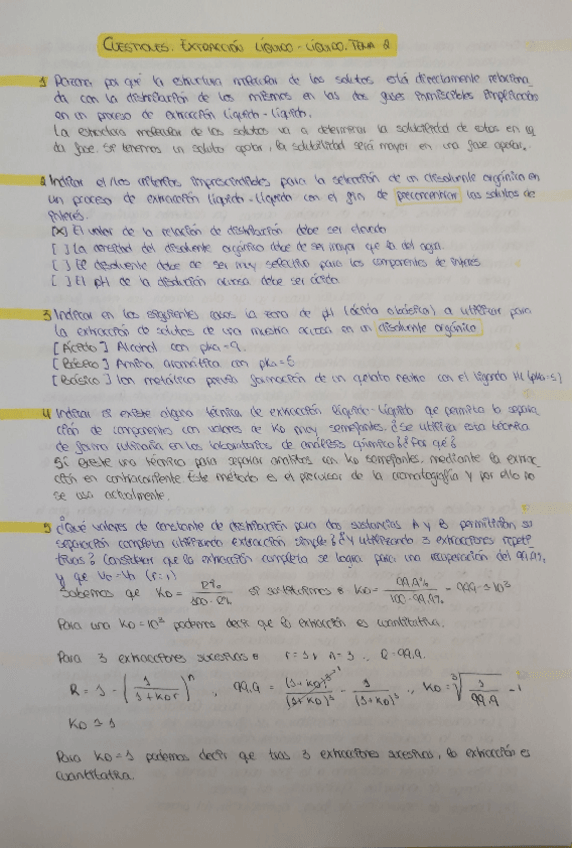 CUESTIONES. EXTRACCIÓN LÍQUIDO-LÍQUIDO. TEMA 2
1 Razona por qué la estructura molecular de los solutos está directamente relaciona
da con la distribución de los mismos en las dos fases inmiscibles implicadas
en un proceso de extracción líquido-líquido.
La estructura molecular de los solutos va a determinar la solubilidad de estos en ca
da fase. Si tenemos un soluto apolar, la solubilidad será mayor en una fase apolar.
2 Indicar el/los criterios imprescindibles para la selección de un disolvente orgánico en
un proceso de extracción líquido-líquido con el fin de preconcentrar los solutos de
interés.
[X] El valor de la relación de distribución debe ser elevado
[ ] La densidad del disolvente orgánico debe de ser mayor que la del agua.
[ ] El disolvente debe de ser muy selectivo para los componentes de interés
[ ] El pH de la disolución acuosa debe ser ácido.
3 Indicar en los siguientes casos la zona de pH (ácida o básica) a utilizar para
la extracción de solutos de una muestra acuosa en un disolvente orgánico
[Ácido] Alcohol con pka=9.
[Básico] Amina aromática con pka=5
[Básico] Ion metálico previa formación de un quelato neutro con el ligando HL (pka=5)
4 Indicar si existe alguna técnica de extracción líquido-líquido que permita la separa
ción de componentes con valores de KD muy semejantes. ¿Se utiliza esta técnica
de forma rutinaria en los laboratorios de análisis químico? ¿Por qué?
Sí existe una técnica para separar analitos con KD semejantes, mediante la extrac
ción en contracorriente. Este método es el precursor de la cromatografía y por ello no
se usa actualmente.
5 ¿Qué valores de constante de distribución para dos sustancias A y B permitirían su
separación completa utilizando extracción simple? ¿Y utilizando 3 extracciones repeti
tivas? Considerar que la extracción completa se logra para una recuperación del 99,9%,
y que
Sabemos que KD = R% / 100-R% si sustituimos KD = 99,9% / 100-99,9% = 999 ≃ 10³
Para una KD=10³ podemos decir que la extracción es cuantitativa.
Para 3 extracciones sucesivas r=1, n=3, R=99,9.
R = 1 - (1 / 1+KD r)ⁿ , 99,9 = KD = ³√
KD ≃ 1
Para KD=1 podemos decir que tras 3 extracciones sucesivas, la extracción es
cuantitativa.